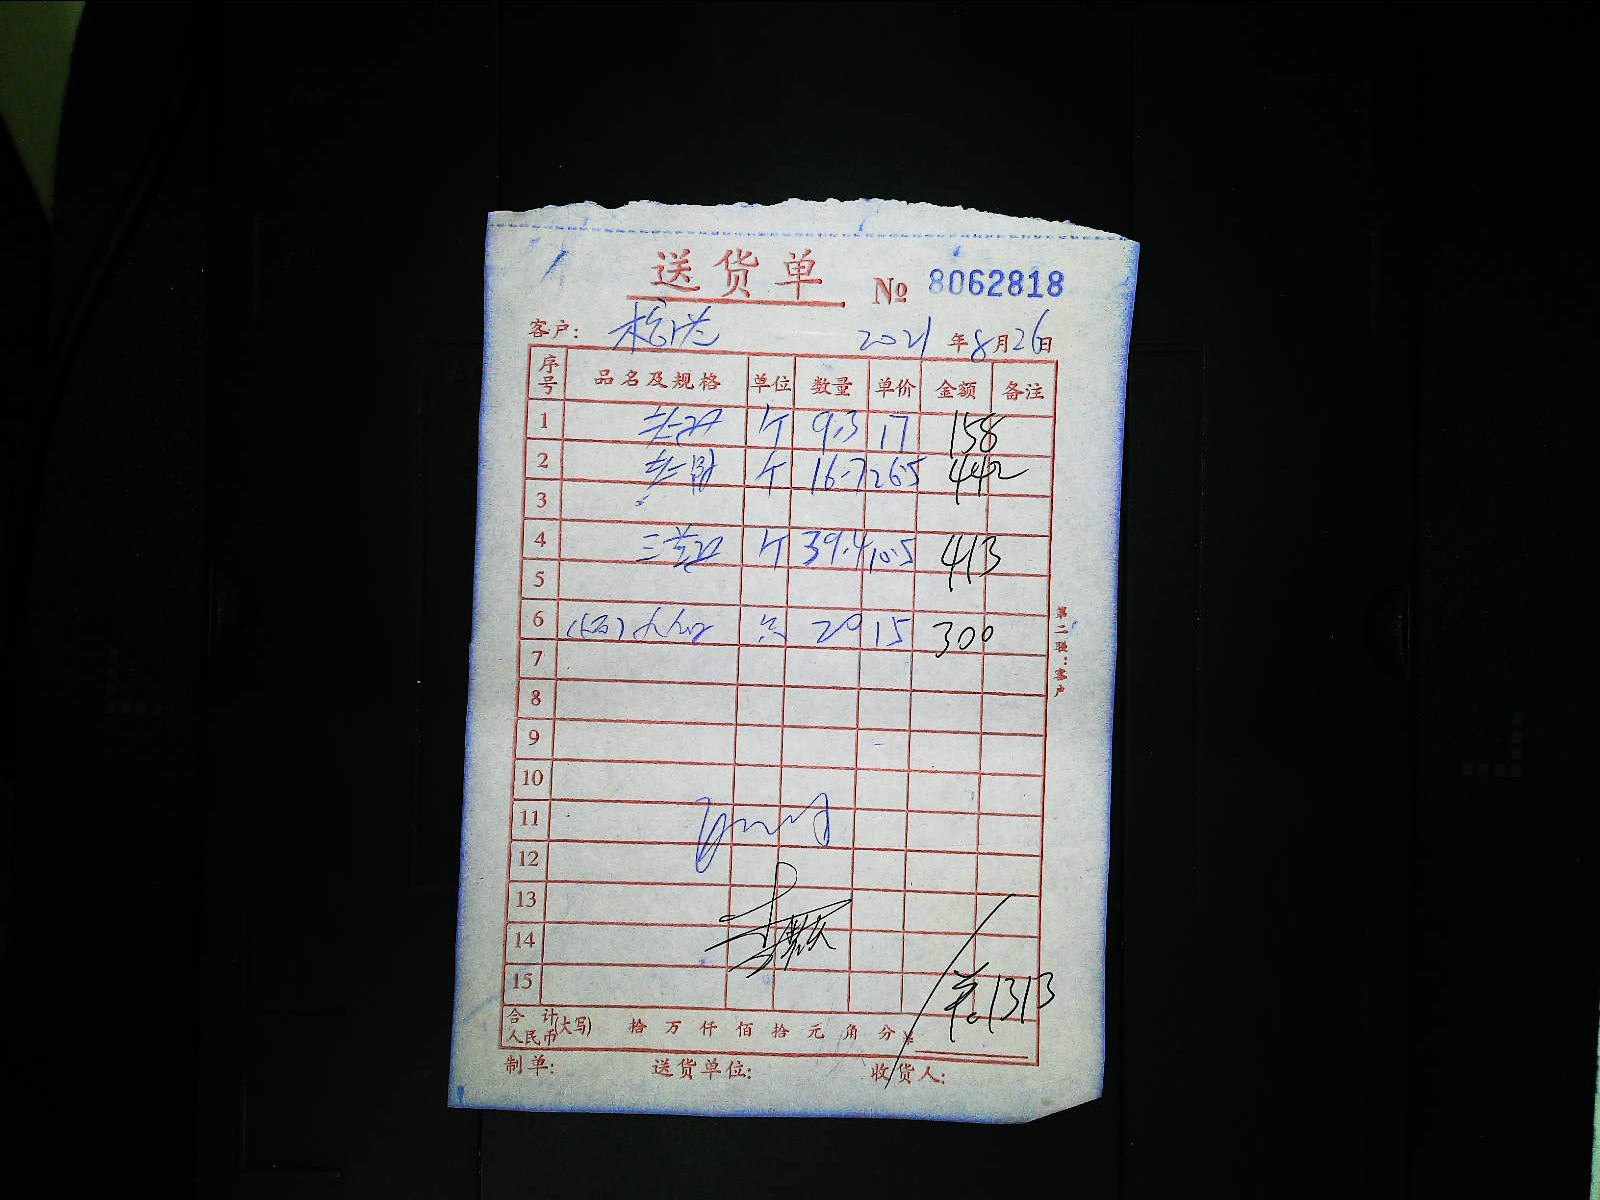 送货单 No 8062818
客户: 2021 年 8 月 26 日
序号 品名及规格 单位 数量 单价 金额 备注
1 个 9.3 17 158
2 个 16.7 26.5 442
3
4 个 39.4 10.5 413
5
6 20 15 300
7
8
9
10
11
12
13
14
15 1313
合计人民币(大写) 拾 万 仟 佰 拾 元 角 分 ¥
制单: 送货单位: 收货人:
第二联:客户